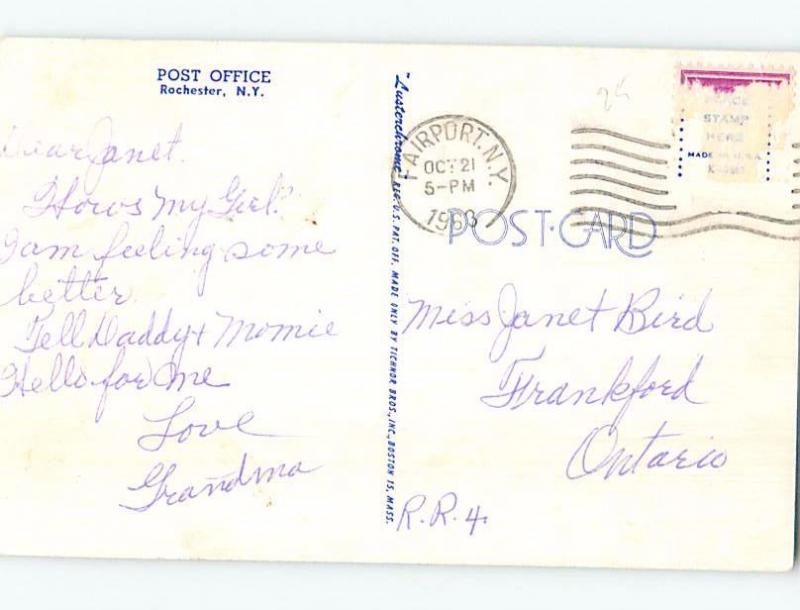 POST OFFICE
Rochester, N.Y.
Dear Janet.
Hows My Girl?
I am feeling some
better
Tell Daddy + Momie
Hello for me
Love
Grandma
"Lusterchrome" REG. U.S. PAT. OFF. MADE ONLY BY TICHNOR BROS., INC., BOSTON 15, MASS.
FAIRPORT. N.Y.
OCT 21
5-PM
1963
PLACE
STAMP
HERE
MADE IN U.S.A.
POST-CARD
Miss Janet Bird
Frankford
Ontario
R.R.4.